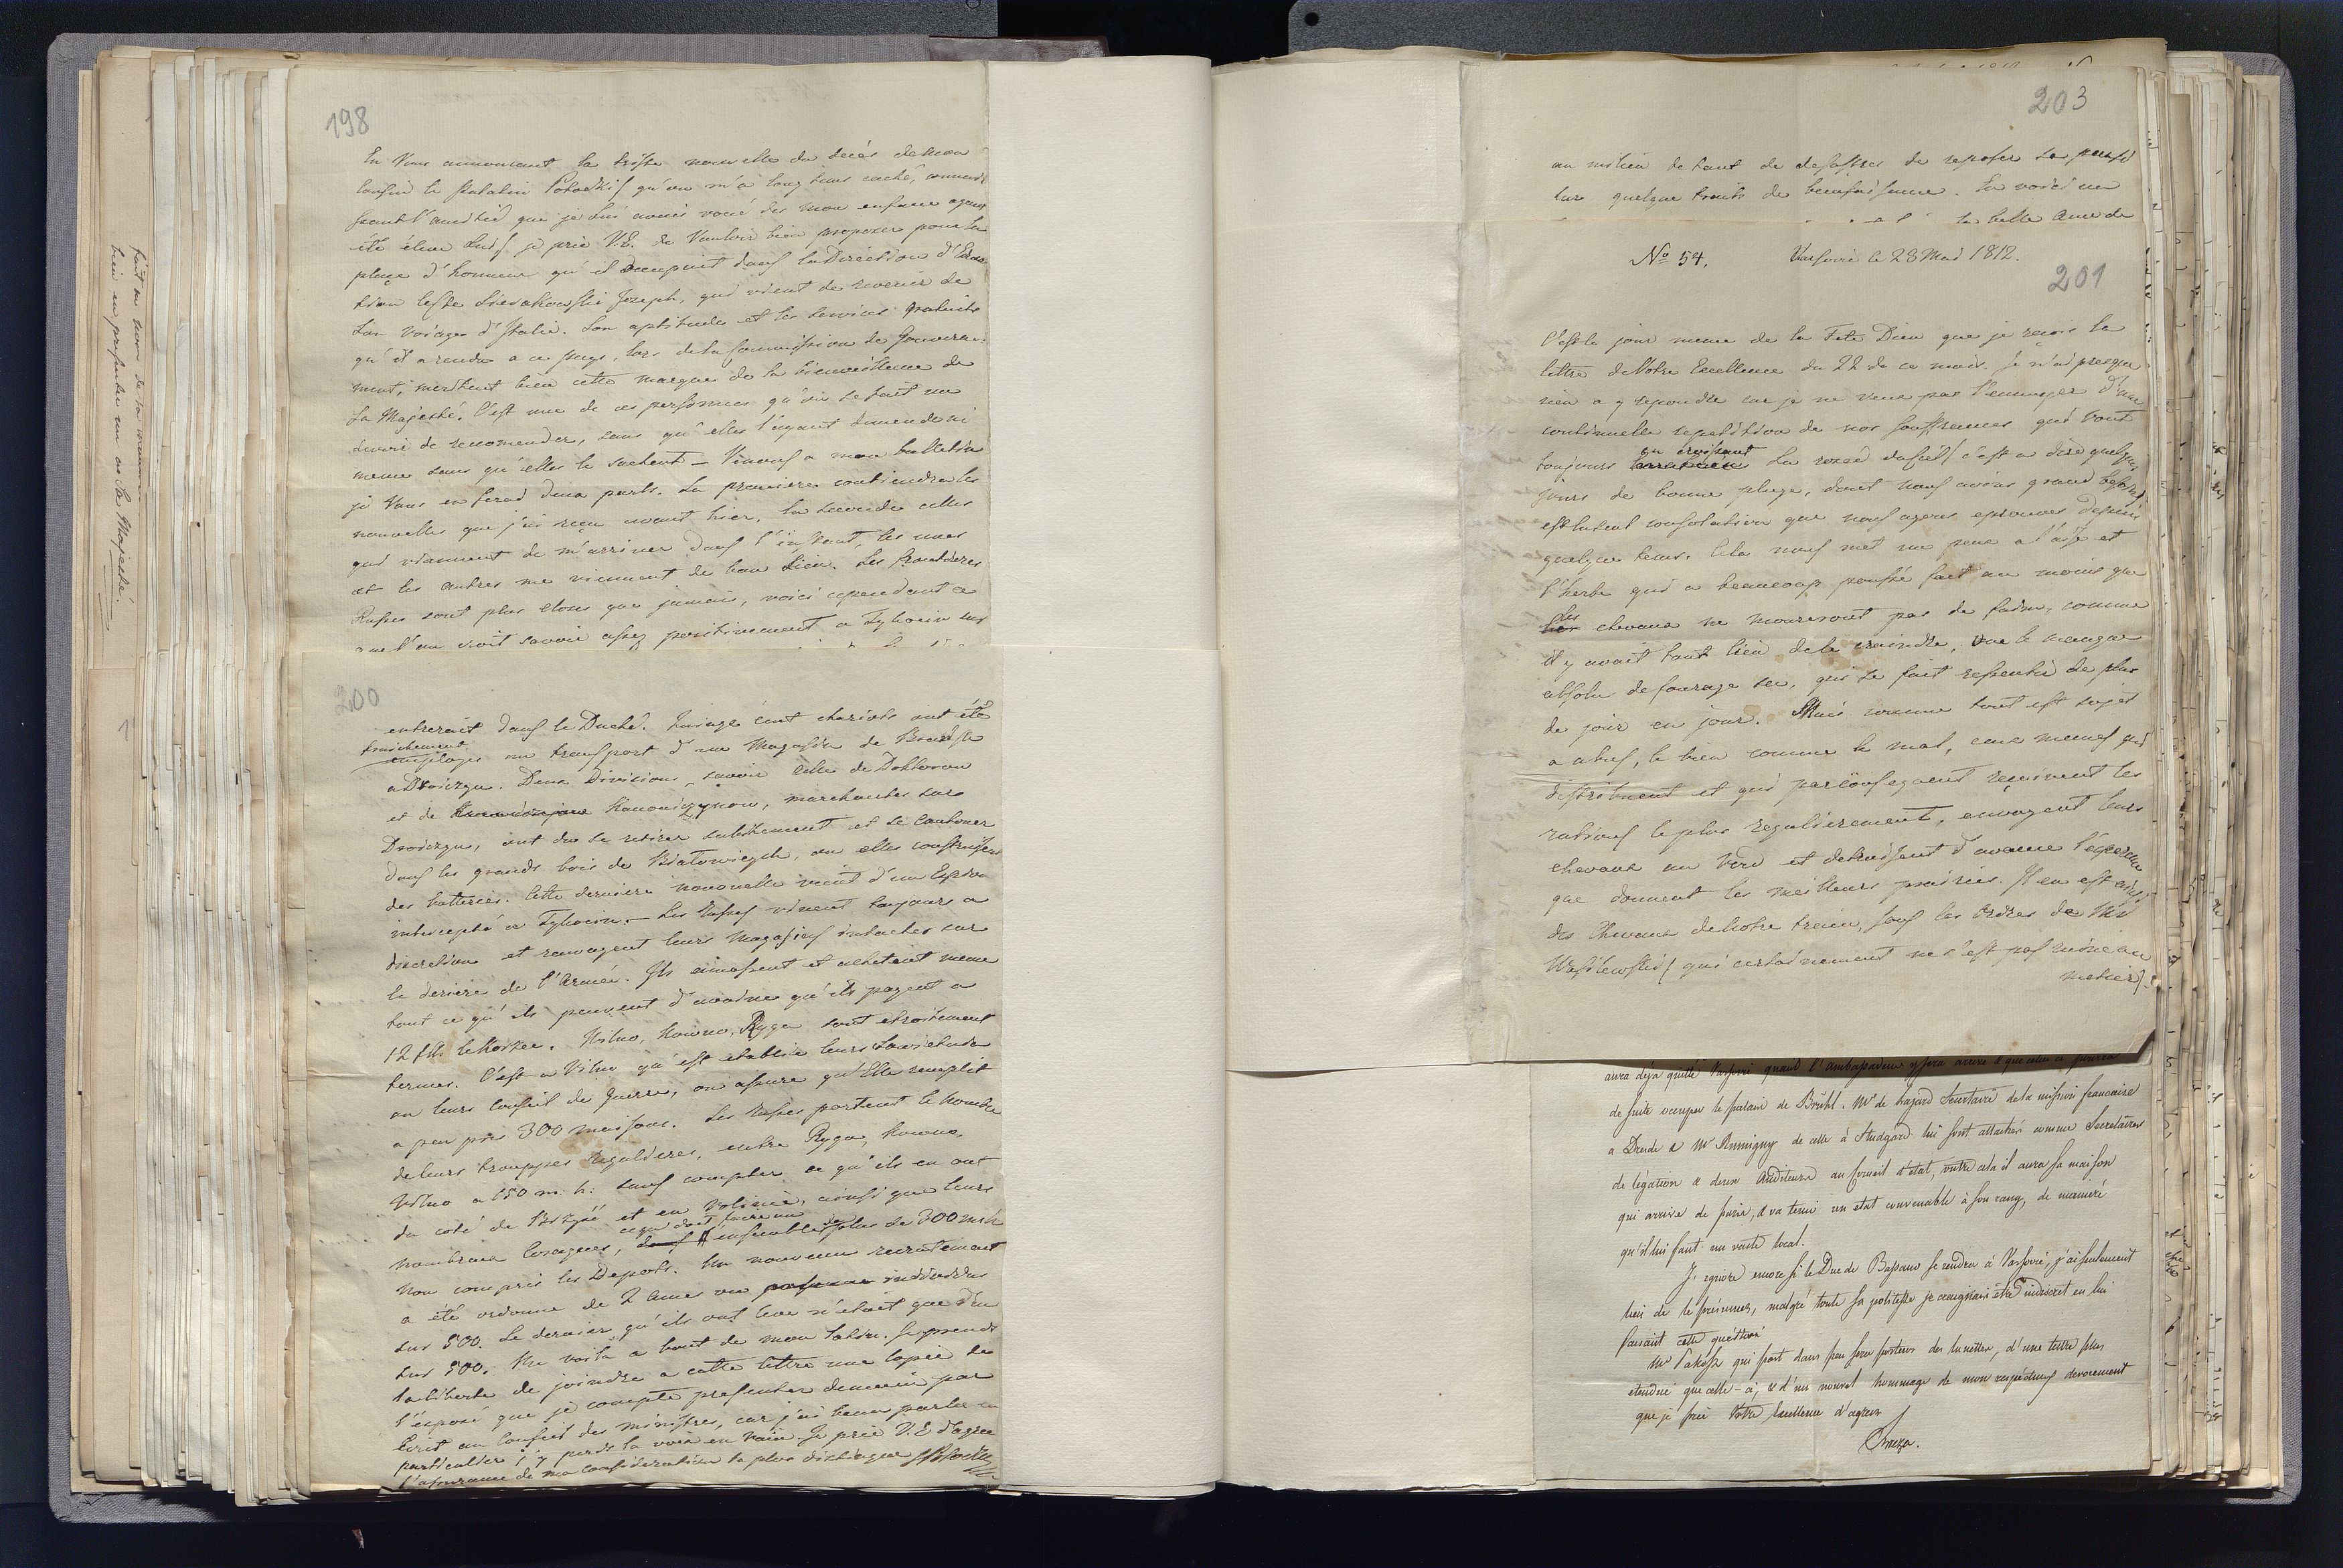 198
En Vous annoncant la triste nouvelle du decés de mon
Cousin le Palatin Potocki (qu'on m'a longtems caché, connais
sant l'amitié que je lui avais voué des mon enfance ayant
été élevé
je prie V.E. de Vouloir bien proposer pour la
place d'honneur qu'il occupoit dans la Direction d'Educa
tion
Sierakowski Jozeph, qui vient de revenir de
son voiage d'Italie. Son aptitude et les services gratuits
qu'il a rendu a ce pays, lors de la Commission de Gouverne
ment, meritent bien cette marque de la bienveillance de
Sa Majesté. C'est une de ces personnes qu'on se fait un
devoir de recomender, sans qu'elles l'ayant demendé ni
meme sans qu'elles le sachent – Venons a mon bulletin
je Vous en ferai deux parts. La premiere contiendra les
nouvelles que j'ai reçu avant hier, la seconde celles
qui viennent de m'arriver dans l'instant, les unes
et les autres me viennent de bon lieu. Les frontieres
Russes sont plus closes que jamais, voici cependant ce
que l'on croit savoir assez positivement a Tykocin
200
entrerait dans le Duché.
cent chariots ont été
fraichement
employés au transport d'un Magasin de
a Droiczyn. Deux Divisions, savoir celle de Doktorow
et de Konowiczynow, marchantes sur
Droiczyn, ont du se retirer subitement et se cantoner
dans les grands bois de Białowiezch, ou elles construisent
des batteries. Cette derniere nouvelle vient d'un Espion
intercepté a Tykocin. – Les Russes vivent toujours a
discretion et
leurs Magasins intactes sur
le deriere de l'Armée. Ils amassent et achetent meme
tout ce qu'ils peuvent d'avoine qu'ils payent a
12 fl. le Korzec. Wilno, Kowno, Ryga sont etroitement
fermés. C'est a Vilno qu'est etablie leurs
ou leurs Conseil de Guerre, on assure qu'Elle remplit
a peu près 300 maisons. Les Russes portent le nombre
de leurs trouppes regulieres, entre Ryga, Kowno,
Vilno a 150 m. h: sans compter ce qu'ils en ont
du coté de
et en Volinie, ainsi que leurs
ce qui doit faire un
nombreux Cosaques,
ensemble de plus de 300 m. h
non compris les Depots. Un nouveau recrutement
a été ordonné de 2 ames ou
individus
sur 500. Le dernier qu'ils ont levé n'etait que d'un
sur 500. Me voila a bout de mon latin. Je prends
la liberté de joindre a cette lettre une Copie de
l'exposé que je compte presenter demain par
écrit au Conseil des ministres, car j'ai beau parler en
particulier j'y perds la voix en vain. Je prie V.E d'agréer
l'assurance de ma consideration la plus distinguée
203
au milieu de tant de desastres de reposer sa pensé
sur quelque traits de bienfaisance. En voici un
la belle ame de
No 54. Varsovie le 28 Mai 1812.
201
C'est le jour meme de la Fete Dieu que je reçois la
lettre de Votre Excellence du 22 de ce mois. Je n'ai presque
rien a y repondre car je ne veux pas l'ennuyer d'une
continuelle repetition de nos souffrances qui vont
en croissant
toujours
La rozée du ciel (c'est a dire quelques
jours de bonne pluye, dont nous avions grand besoin)
est la seul consolation que nous ayons eprouvés depuis
quelque tems. Cela nous met un peux a l'aise et
l'herbe qui a beaucoup poussé fait au moins que
les
chevaux ne mourront pas de faim, comme
il y avait tout lieu de le craindre, vue le manque
absolu de fourage sec, qui se fait ressentir de plus
de jour en jour. Mais comme tout est sujet
a abus, le bien comme le mal, ceux memes qui
distribuent et qui par consequent reçoivent les
rations le plus regulierement, envoyent leurs
chevaux au verd et detruisent d'avance l'esperance
que donnent les meilleurs prairies. Il en est ainsi
des Chevaux de notre train, sous les Ordres de Mr
Wasilewski (qui certainement ne s'est pas ruiné au
metier).
aura déja quitté Varsovie quand l'ambassadeur y sera arrivé & que celui ci pourra
de suite occuper le palais de Brühl. Mr de
Secretaire de la mission francaise
a Dresde & Mr Rumigny de celle à Studgard lui sont attachés comme Secretaires
de légation & deux Auditeurs au Conseil d'état, outre cela il aura sa maison
qui arrive de Paris, & va tenir un état convenable à son rang, de maniere
qu'il lui faut un vaste local.
J'ignore encore si le Duc de Bassano se rendra à Varsovie, j'ai seulement
lieu de le présumer, malgré toute sa politesse je craignais d'être indiscret en lui
faisant cette question
Mr Pakosz qui part dans peu sera porteur des lunettes, d'une lettre plus
étendue que celle-ci, & d'un nouvel hommage de mon respectueux devouement
que je prie Votre Excellence d'agreer
Breza.
faire au nom de
bien en presenter un a Sa Majesté.